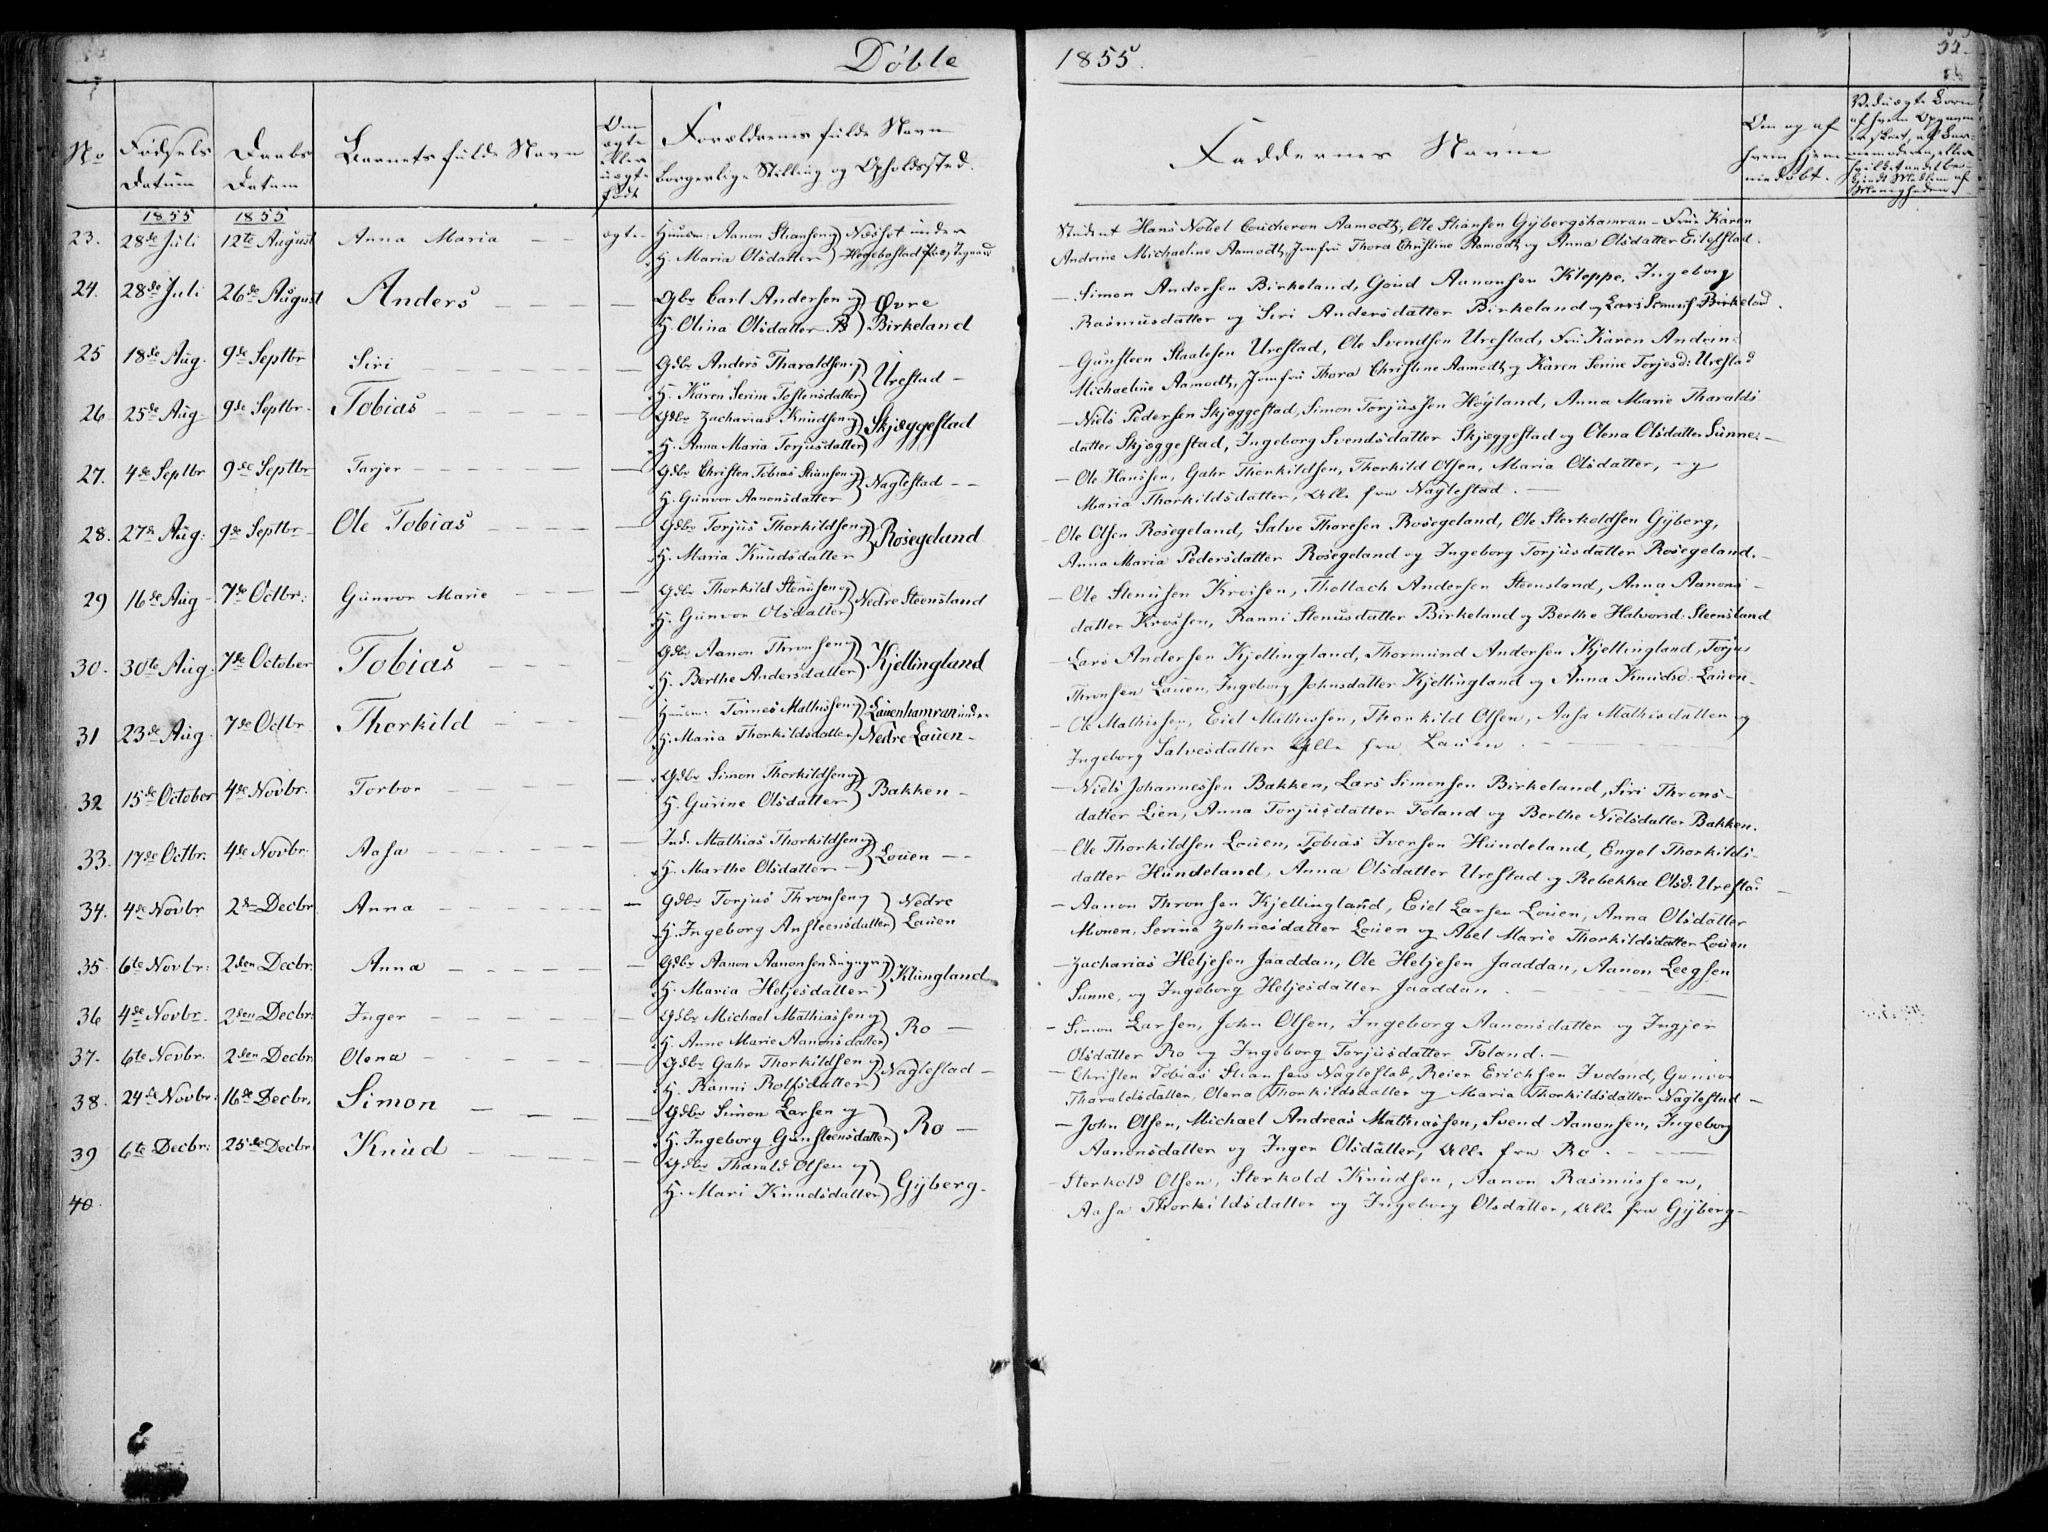 Döbte 1855.
No
Fødsels Datum
Daabs Datum
Barnets fulde Navn
Om ægte eller uægte født
Forældrenes fulde Navn borgerlige Stilling og Opholdssted.
Faddernes Navne
Om og af hvem hjemmedøbt.
1855 1855
23. 28de Juli 12te August Anna Maria — — ægte Huusm: Aanon Stiansen og Næsset under
H. Maria Olsdatter Hægebostad
Student Hans Nobel Coucheron Aamodt, Ole Stiansen Gÿbergshamran — Frue Karen
Andrine Michaeline Aamodt, Jomfru Thora Christine Aamodt og Anna Olsdatter Eilefstad.
24. 28de Juli 26de August Anders — — — — Gbr Carl Andersen og Øvre
H. Olina Olsdatter Birkeland
— Simon Andersen Birkeland, Goud Aanonsen Kleppe, Ingeborg
Rasmusdatter og Siri Andersdatter Birkeland og Lars Birkeland.
25 18de Aug. 9de Septbr Siri — — — — Gdbr Anders Tharaldsen og Urestad —
H. Karen Serine Tostensdatter
— Gunsteen Staalesen Urestad, Ole Svendsen Urestad, Fru Karen Andrine
Michaeline Aamodt, Jomfru Thora Christine Aamodt og Karen Serine Torjesd: Urestad
26 25de Aug. 9de Septbr. Tobias — — — — Gdbr Zacharias Knudsen og Skjæggestad
H. Anna Maria Torjusdatter
— Niels Pedersen Skjæggestad, Simon Torjussen Höyland, Anna Marie Tharalds
datter Skjæggestad, Ingeborg Svendsdatter Skjæggestad og Olena Olsdatter Sunne. —
27. 4de Septbr 9de Septbr Tarjer — — — — Gdbr Christen Tobias Stiansen og Naglestad — —
H. Gunvor Aanonsdatter
— Ole Hanssen, Gahr Thorkildsen, Thorkild Olsen, Maria Olsdatter, og
Maria Thorkildsdatter, Alle fra Naglestad. —
28. 27de Aug: 9de Septbr — Ole Tobias — — — — Gdbr Torjus Thorkildsen og Rosegeland
H. Maria Knudsdatter
Ole Olsen Rosegeland, Salve Thoresen Rosegeland, Ole Sterkoldsen Gÿberg,
Anna Maria Pedersdatter Rosegeland og Ingeborg Torjusdatter Rosegeland. —
29 16de Aug — 7de Octbr: Gunvor Marie — — — Gdbr Thorkild Stenusen og Nedre Steensland
H. Gunvor Olsdatter
— Ole Stenusen Kroisen, Thollach Andersen Steensland, Anna Aanons —
datter Kroisen, Ranni Stenusdatter Birkeland og Berthe Halvorsd: Steensland
30. 30te Aug. 7de October Tobias — — — Gdbr Aanon Thronsen og Kjellingland
H. Berthe Andersdatter
— Lars Andersen Kjellingland, Thormund Andersen Kjellingland, Torjus
Thronsen Lauen, Ingeborg Johnsdatter Kjellingland og Anna Knudsd. Lauen —
31 23de Aug 7de Octbr Thorkild — — — Huusm: Tönnes Mathissen og Lauenhamran under
H. Maria Thorkildsdatter Nedre Lauen —
— Ole Mathissen, Eiel Mathissen, Thorkild Olsen, Aasa Mathisdatter og
Ingeborg Salvesdatter Alle fra Lauen. — — —
32 15de October 4de Novbr. Torbor — — — — Gdbr Simon Thorkildsen og Bakken —
H. Gurine Olsdatter
— Niels Johannessen Bakken, Lars Simonsen Birkeland, Siri Throns —
datter Lien, Anna Torjusdatter Foland og Berthe Nielsdatter Bakken.
33. 17de Octbr. 4de Novbr. Aasa — — — — Ind. Mathias Thorkildsen og Louen — —
H. Marthe Olsdatter —
— Ole Thorkildsen Louen, Tobias Iversen Hundeland, Engel Thorkilds —
datter Hundeland, Anna Olsdatter Urestad og Rebekka Olsd: Urestad —
34. 4de Novbr 2den Decbr. Anna — — — — Gdbr Torjus Thronsen og Nedre
H. Ingeborg Ansteensdatter Lauen
— Aanon Thronsen Kjellingland, Eiel Larsen Louen, Anna Olsdatter
Monen, Serine Zohnesdatter Louen og Abel Marie Thorkildsdatter Louen
35. 6te Novbr: 2den Decbr. Anna — — — — Gdbr Aanon Aanonsen og Klungland
H. Maria Heljesdatter
— Zacharias Heljesen Jaaddan, Ole Heljesen Jaaddan, Aanon Leegsen
Sunne, og Ingeborg Heljesdatter Jaaddan. — — —
36 4de Novbr. 2den Decbr: Inger — — — — Gdbr Michael Mathiassen og Ro —
H. Anne Marie Aanonsdatter
— Simon Larsen, John Olsen, Ingeborg Aanonsdatter og Ingjer
Olsdatter Ro og Ingeborg Torjusdatter Foland. —
37. 6te Novbr. 2den Decbr Olena — — — — Gdbr Gahr Thorkildsen og Naglestad —
H. Ranni Rolfsdatter
— Christen Tobias Stiansen Naglestad, Reier Erichsen Ivdand, Gunvor
Tharaldsdatter, Olena Thorkildsdatter og Maria Thorkildsdatter Naglestad —
38. 24de Novbr: 16de Decbr. Simon — — — — Gdbr Simon Larsen og Ro —
H. Ingeborg Gunsteensdatter
— John Olsen, Michael Andreas Mathiassen, Svend Aanonsen, Ingeborg
Aanonsdatter og Inger Olsdatter, Alle fra Ro. — —
39 6te Decbr: 25de Decbr. Knud — — — — Gdbr Tharald Olsen og Gÿberg.
H. Mari Knudsdatter
— Sterkold Olsen, Sterkold Knudsen, Aanon Rasmussen,
Aasa Thorkildsdatter og Ingeborg Olsdatter, Alle fra Gÿberg —
40.